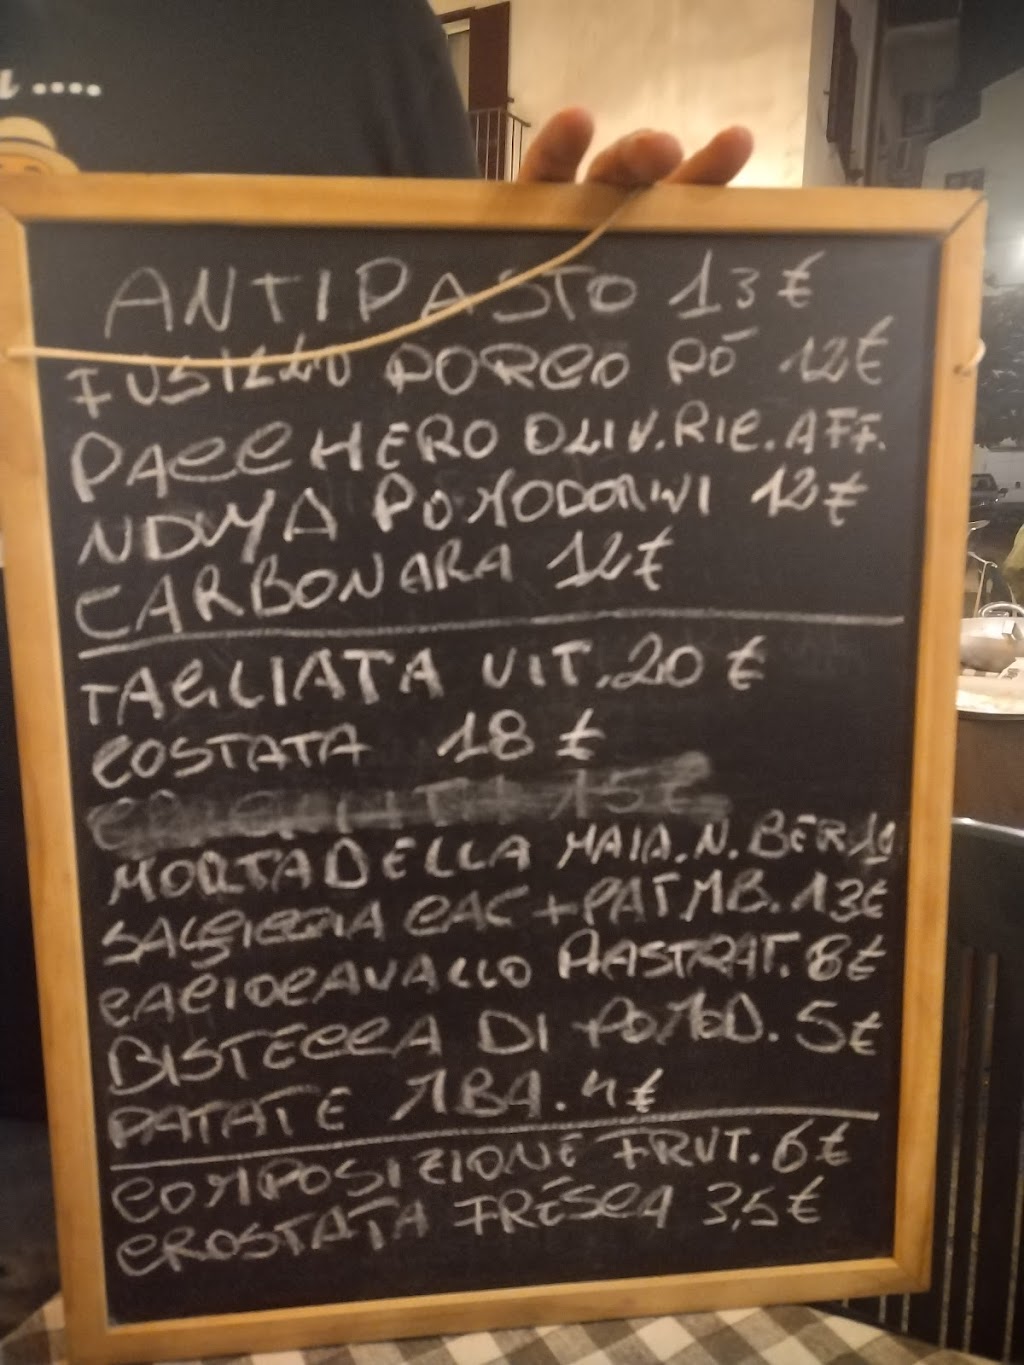 ANTIPASTO 13€
FUSILLO PORCO PÒ 12€
PACCHERO OLIV.RIC.AFF.
NDUYA POMODORINI 12€
CARBONARA 12€
TAGLIATA VIT.20€
COSTATA 18€
15€
MORTADELLA MAIA.N.BER
SALSICCIA CAC+PAT MB.13€
CACIOCAVALLO PIASTRAT.8€
BISTECCA DI POMOD.5€
PATATE MBA.4€
COMPOSIZIONE FRUT.6€
CROSTATA FRESCA 3,5€